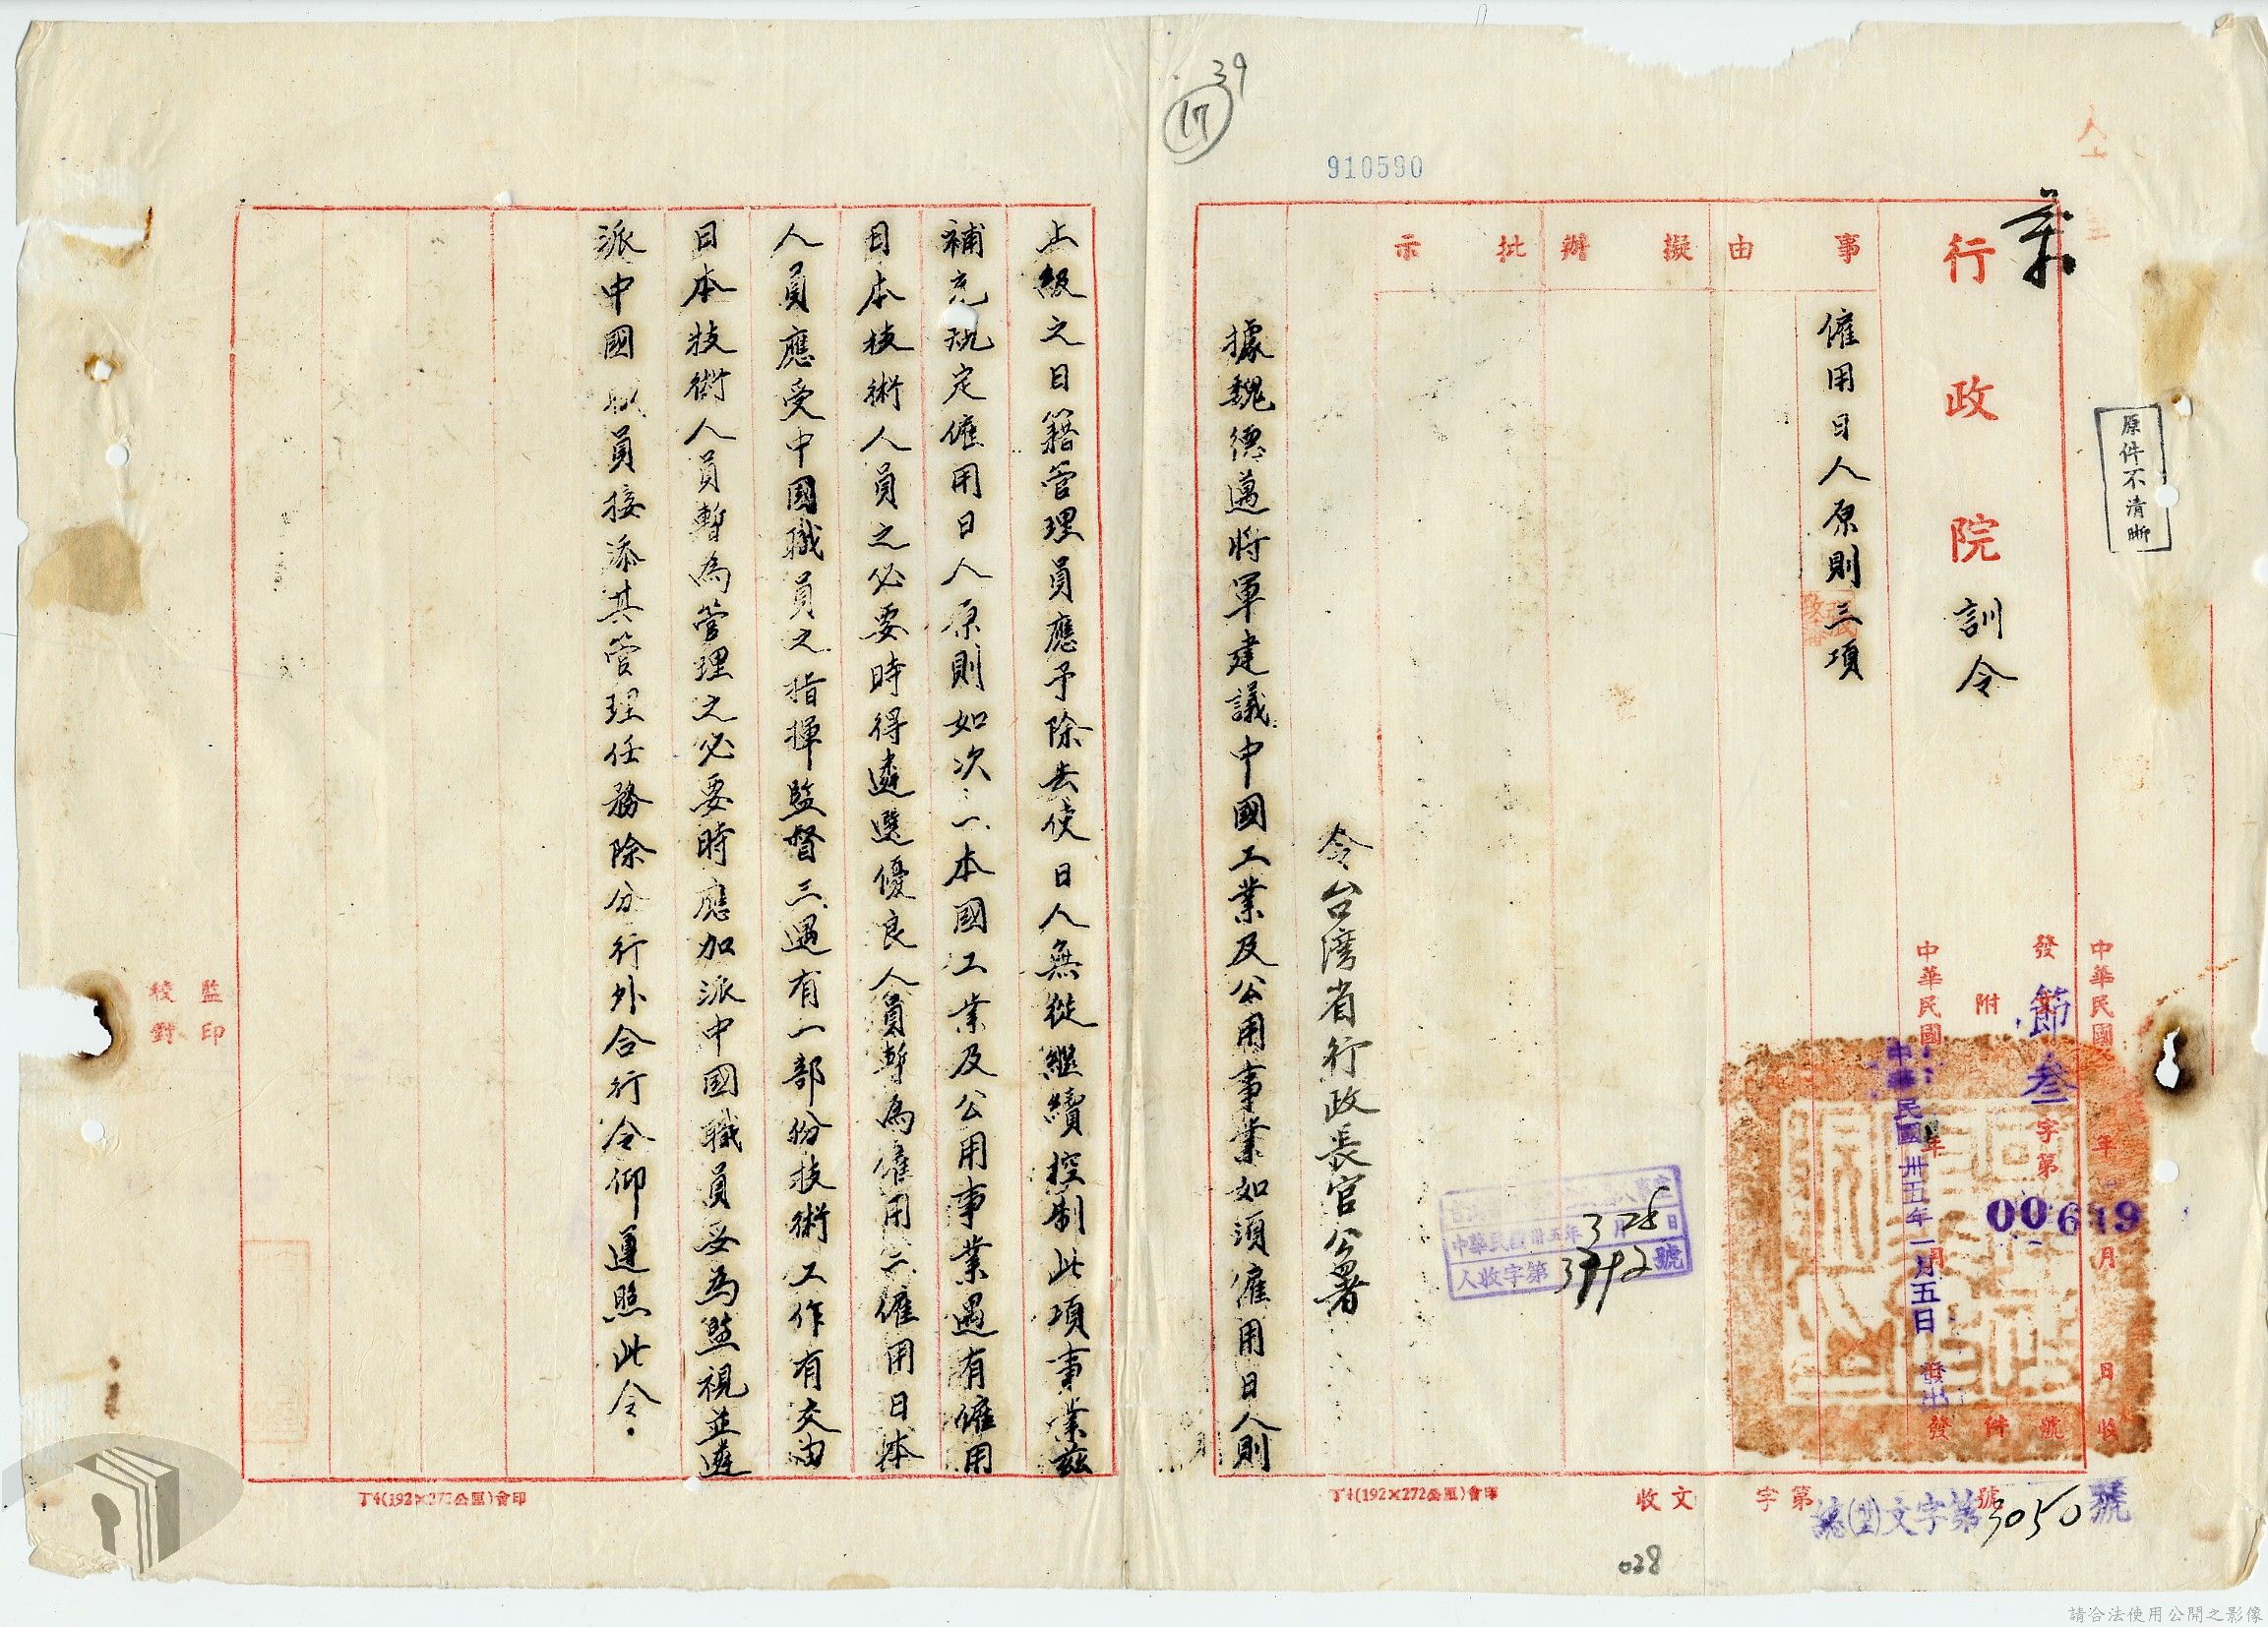 39
17
910590
行政院訓令
原件不清晰
事由
擬辦
批示
僱用日人原則三項
中華民國 年 月 日收
發 節叁字第00619號
附 件
中華民國 年 月 日發
中華民國卅五年一月五日發出
中華民國卅五年3月28日
人收字第3792號
令台灣省行政長官公署
據魏德邁將軍建議中國工業及公用事業如須僱用日人則
丁4(192×272公厘)會印
收文 字第 號
文字第3050號
038
上級之日籍管理員應予除去使日人無從繼續控制此項事業茲
補充規定僱用日人原則如次:一、本國工業及公用事業遇有僱用
日本技術人員之必要時得遴選優良人員暫為僱用二、僱用日本
人員應受中國職員之指揮監督三、遇有一部份技術工作有交由
日本技術人員暫為管理之必要時應加派中國職員妥為監視並遴
派中國 員接添其管理任務除分行外合行令仰遵照此令。
監印
校對
丁4(192×272公厘)會印
請合法使用公開之影像